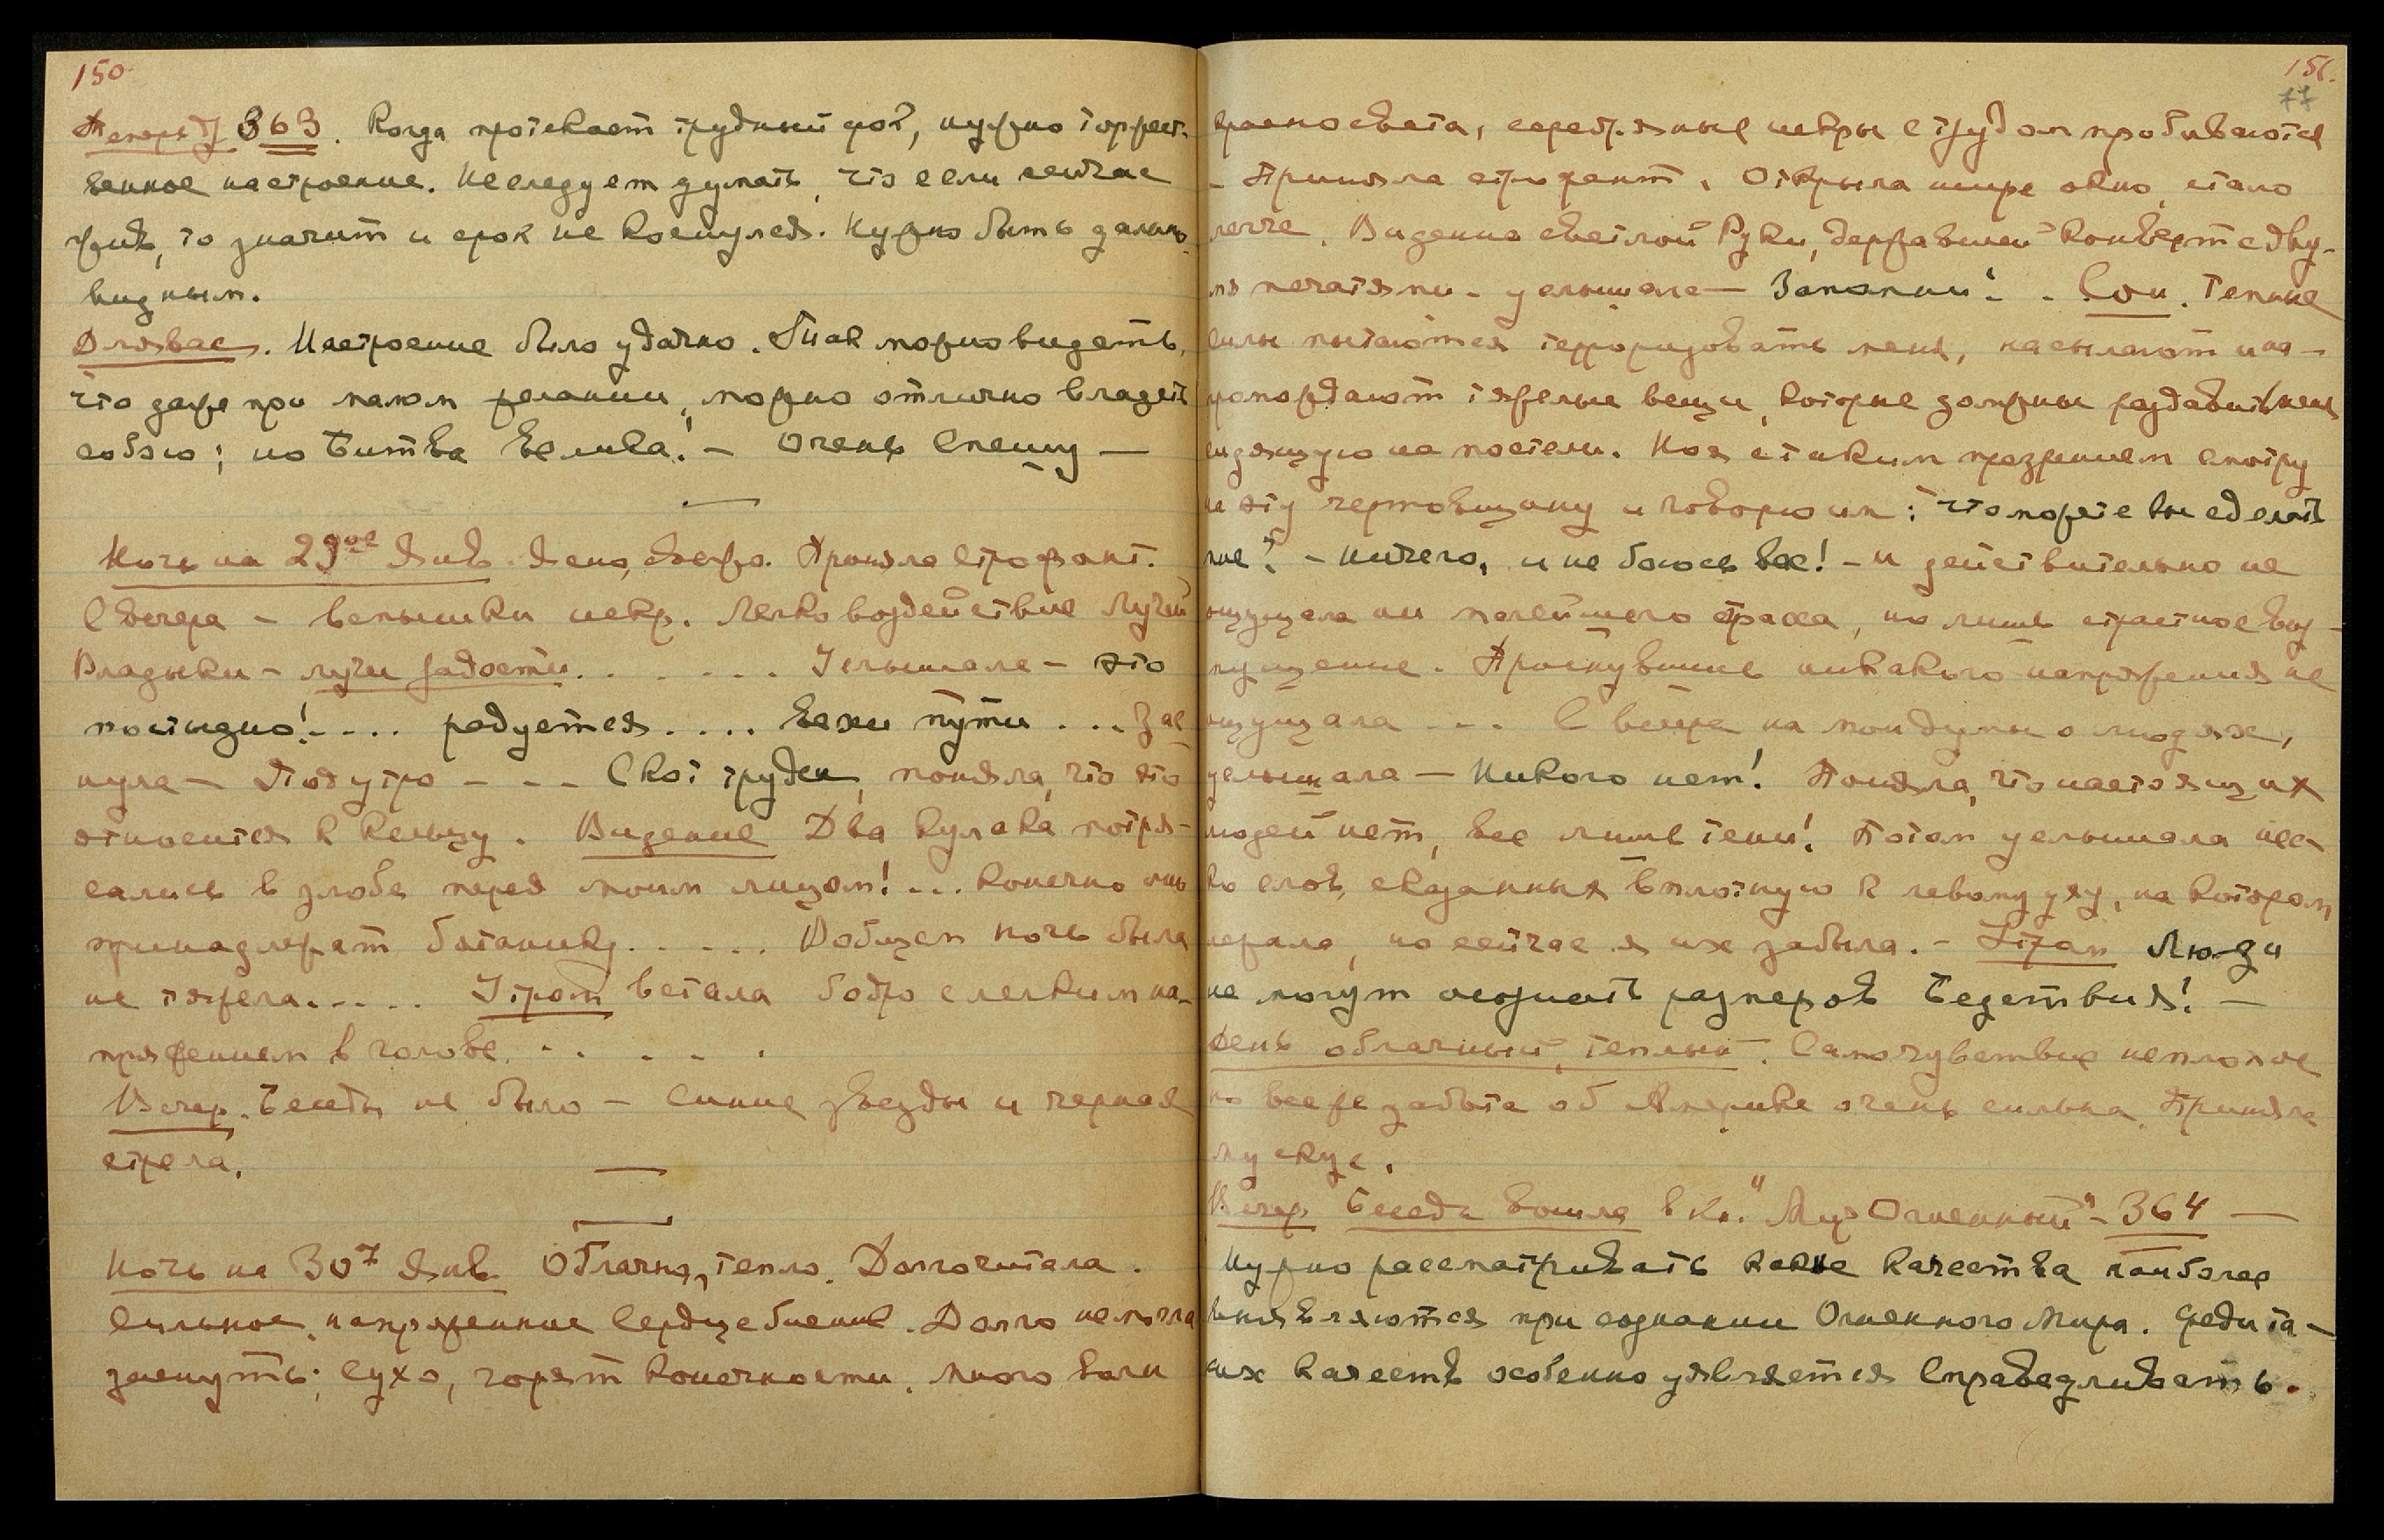 150
Теперь 363. Когда протекает трудный срок, нужно торжест-
венное настроение. Не следует думать, что если сейчас
жив, то значит и срок не коснулся. Нужно быть дально-
видным.
Для вас. Настроение было удачно. Так можно видеть,
что даже при малом желании, можно отлично владеть
собою; но Битва велика! — Очень Спешу —
Ночь на 29ое Янв. Ясно, свежо. Приняла Строфант.
С вечера — вспышки искр. Легко воздействие Лучей
Владыки — лучи радости. . . . . . . Услышала — это
постыдно! . . . . радуется . . . . вехи пути . . . Зас-
нула — Под утро — — — Скот труден, поняла, что это
относится к кельцу. Видение Два кулака потря-
сались в злобе перед моим лицом! . . . Конечно они
принадлежат ботанику . . . . . Вобщем ночь была
не тяжела. . . . . Утром встала бодро с легким на-
пряжением в голове. . . . . .
Вечер. Беседы не было — Синие звезды и черная
стрела.
Ночь на 30е Янв. Облачно, тепло. Долго читала.
Сильное, напряженное Сердцебиение. Долго не могла
заснуть; Сухо, горят конечности. Много волн
151.
77
красно света, серебряные искры с трудом пробиваются
— Приняла строфант. Открыла шире окно, стало
легче. Видение светлой Руки, державшей конверт с дву-
мя печатями — услышала — Запомни! — Сон. Темные
силы пытаются терроризовать меня, насылают и на-
громождают тяжелые вещи, которые должны раздавить меня
сидящую на постели. Но я с таким презрением смотрю
на эту чертовщину и говорю им: что можете вы сделать
мне? — ничего, и не боюсь вас! — и действительно не
ощущала ни малейшего страха, но лишь страстное воз-
мущение. Проснувшись никакого напряжения не
ощущала . . . С вечера на мои думы о людях,
услышала — Никого нет! Поняла, что настоящих
людей нет, все лишь тени! Потом услышала нес-
ко слов, сказанных вплотную к левому уху, на котором
лежала, но сейчас я их забыла. — Утром Люди
не могут осознать размеров Бедствия! —
День облачный, теплый. Самочувствие неплохое
но все же забота об Америке очень сильна. Приняла
мускус.
Вечер Беседа вошла в Кн. "Мир Огненный" — 364 —
Нужно рассматривать какие качества наиболее
выявляются при сознании Огненного Мира. Среди та-
ких качеств особенно уявляется Справедливость.